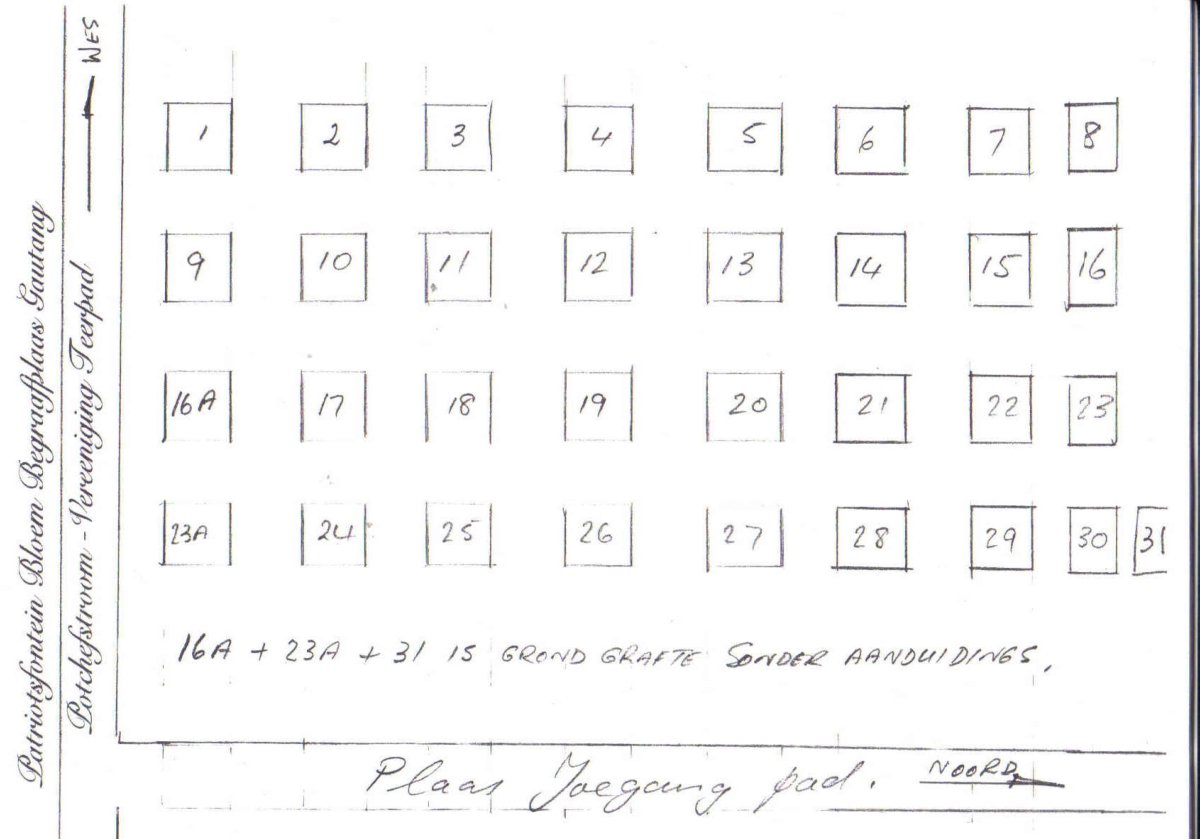 Patriotsfontein Bloem Begraafplaas Gautang
Potchefstroom - Vereeniging Teerpad
WES
1 2 3 4 5 6 7 8
9 10 11 12 13 14 15 16
16A 17 18 19 20 21 22 23
23A 24 25 26 27 28 29 30 31
16A + 23A + 31 IS GROND GRAFTE SONDER AANDUIDINGS.
Plaas Toegang pad. NOORD